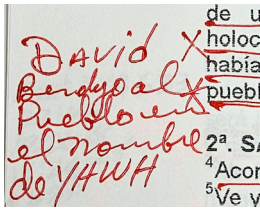 David X
Bendijo al X
Pueblo en
el nombre
de YHWH
de u
holoc
había
puebl
2ª. S
⁴Acor
⁵Ve y